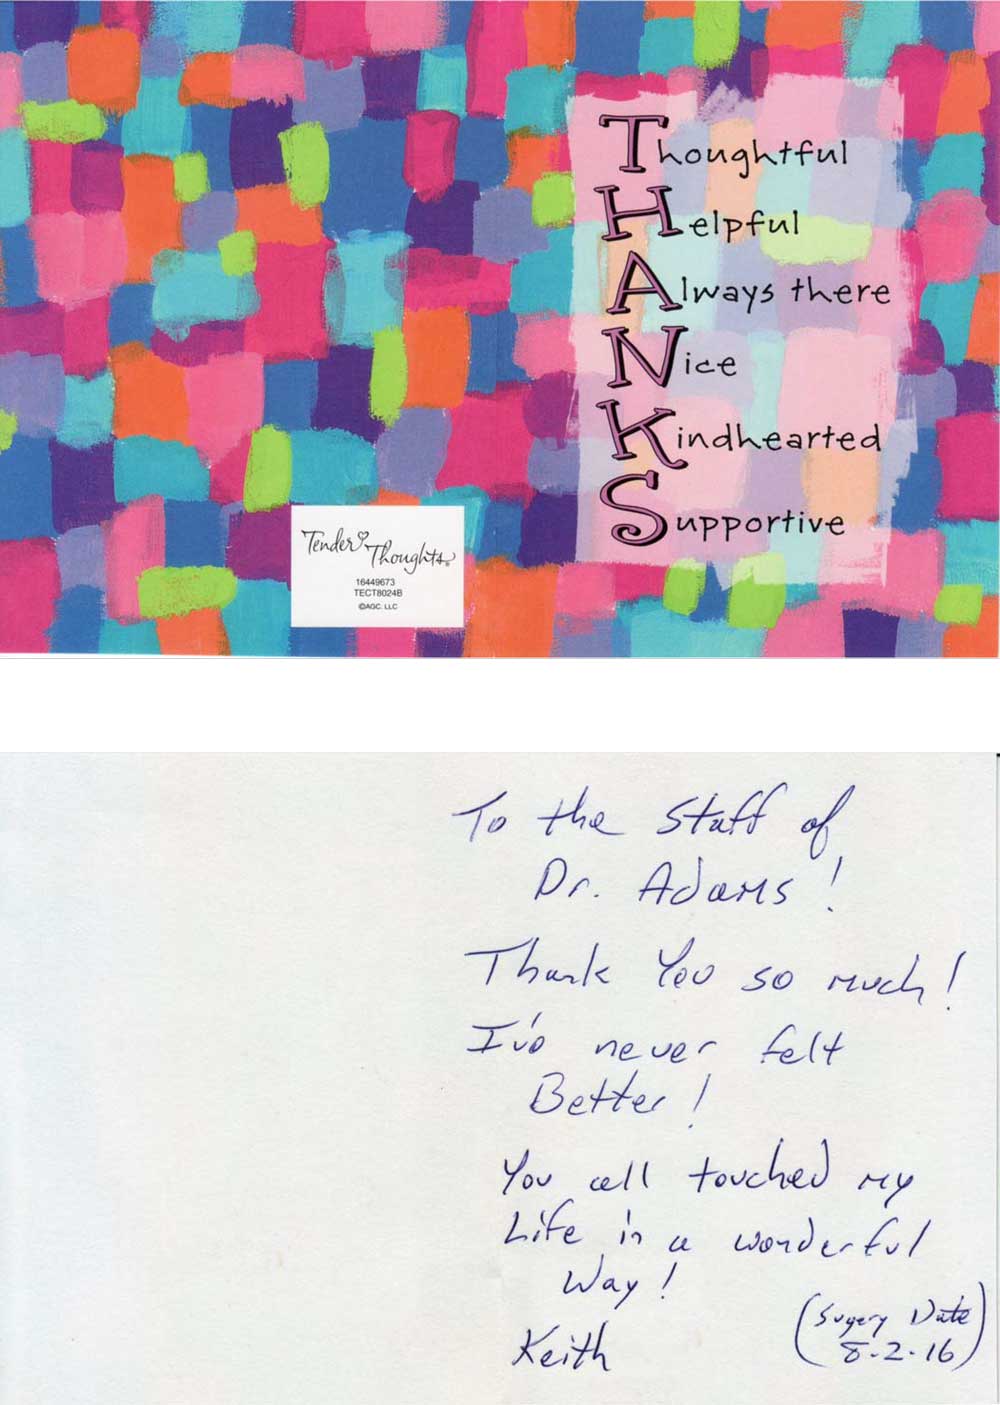 Thoughtful
Helpful
Always there
Nice
Kindhearted
Supportive
Tender Thoughts®
16449673
TECT8024B
©AGC, LLC
To the Staff of
Dr. Adams!
Thank You so much!
I've never felt
Better!
You all touched my
Life in a wonderful
Way!
Keith
(Sugery Date
8-2-16)